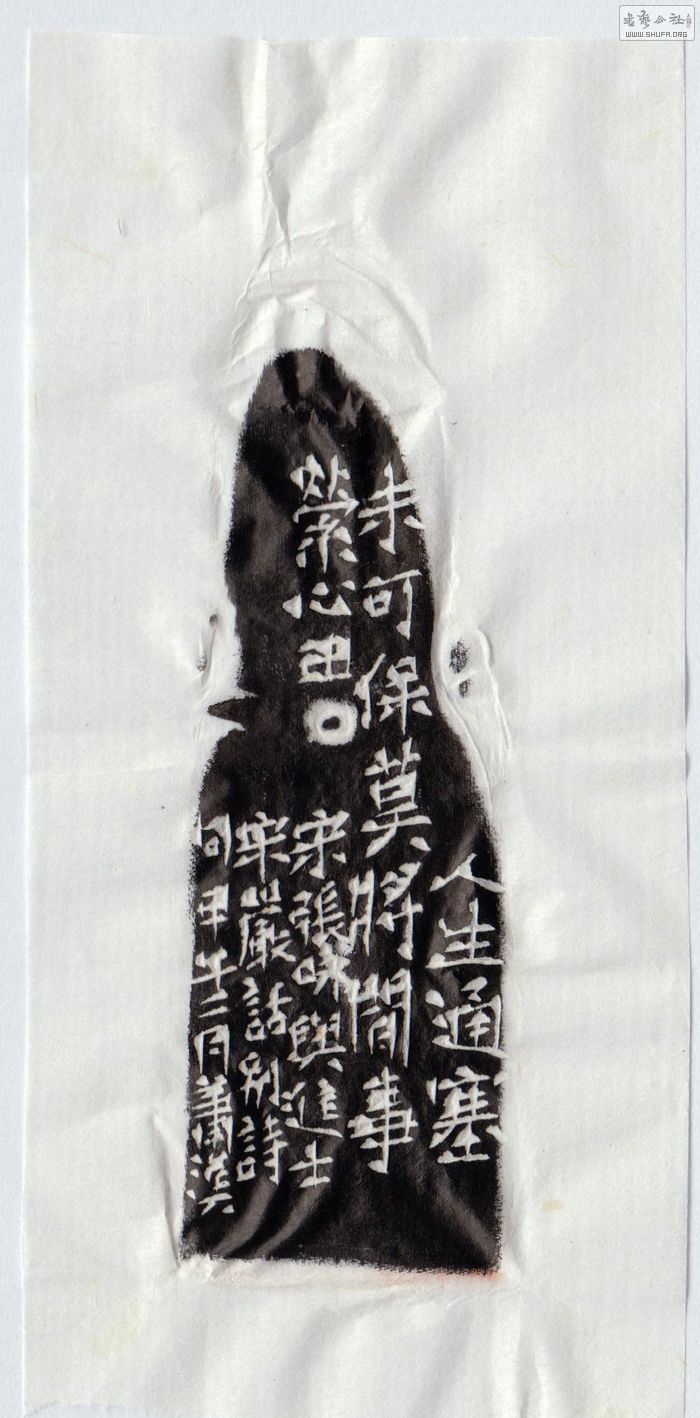 人生通塞
未可保莫將閒事
縈心田
宋張咏與進士
宋嚴話別詩
句甲午二月蕭
書藝公社
WWW.SHUFA.ORG